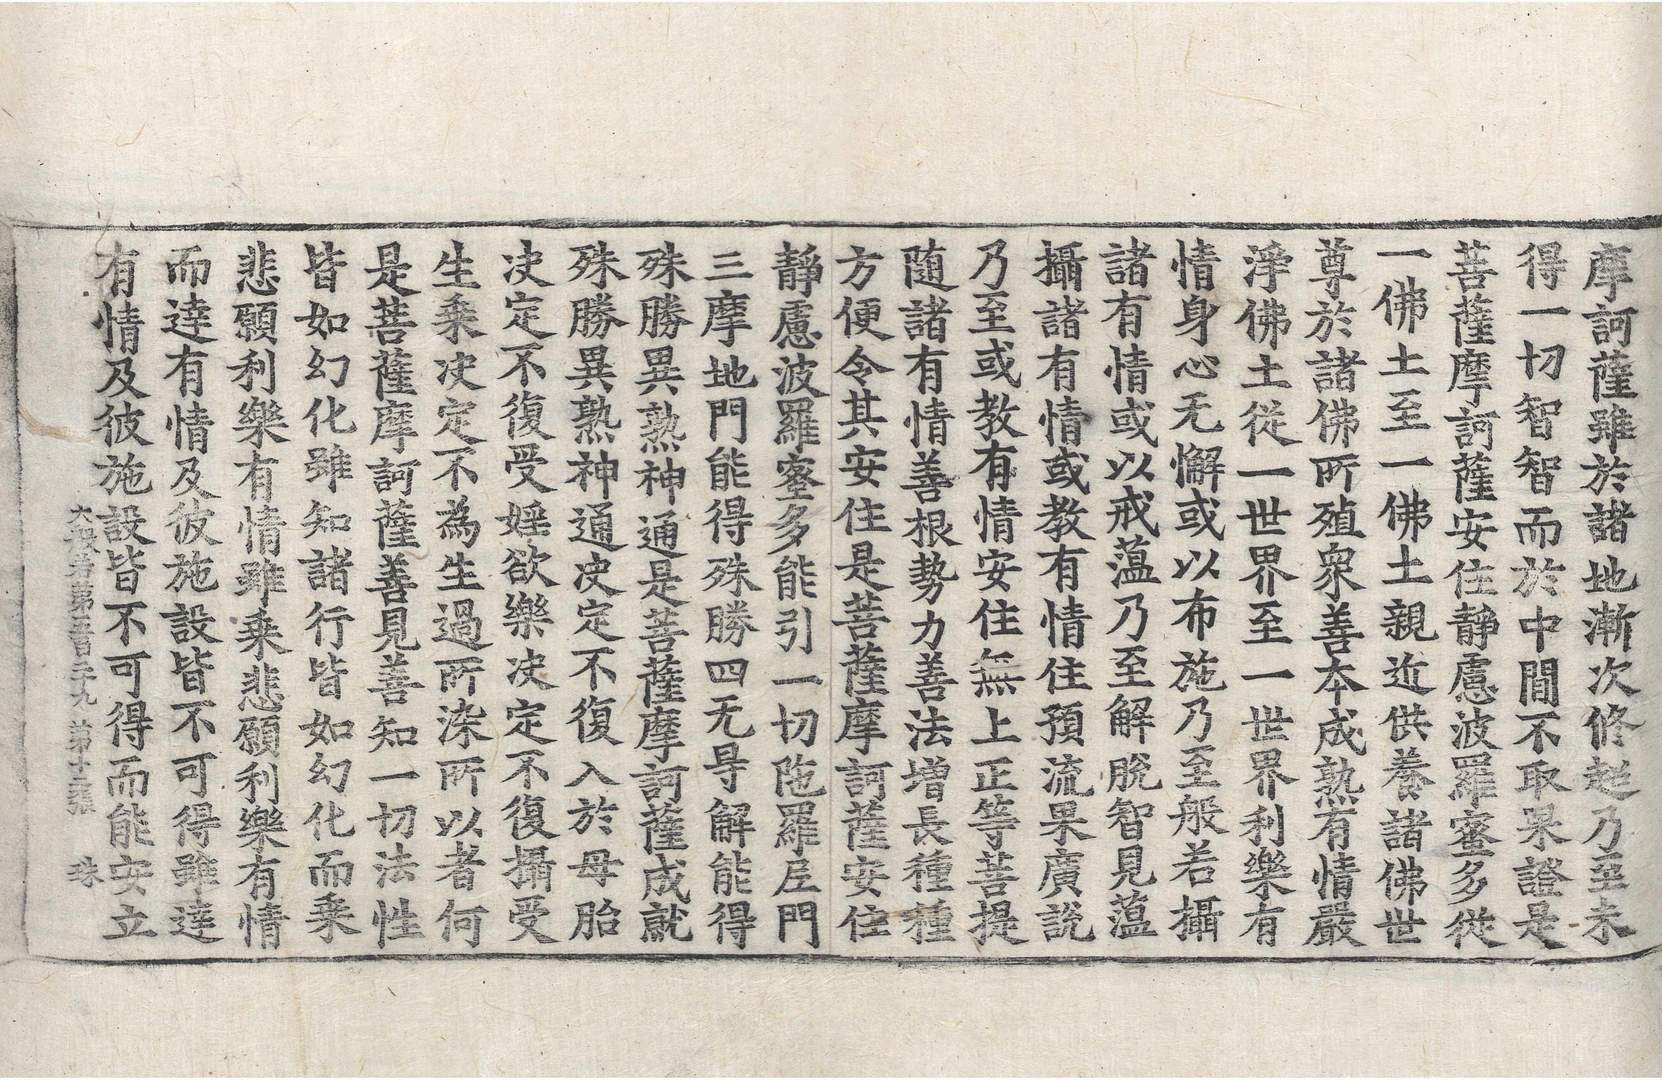 摩訶薩雖於諸地漸次修趍乃至未
得一切智智而於中閒不取果證是
菩薩摩訶薩安住靜慮波羅蜜多従
一佛土至一佛土親近供養諸佛世
尊於諸佛所殖衆善本成熟有情嚴
淨佛土従一世界至一世界利樂有
情身心无懈或以布施乃至般若攝
諸有情或以戒蘊乃至解脫智見蘊
攝諸有情或教有情住預流果廣說
乃至或教有情安住無上正等菩提
随諸有情善根勢力善法增長種種
方便令其安住是菩薩摩訶薩安住
靜慮波羅蜜多能引一切陁羅尼門
三摩地門能得殊勝四无㝵解能得
殊勝異熟神通是菩薩摩訶薩成就
殊勝異熟神通决定不復入於母胎
决定不復受婬欲樂决定不復攝受
生乗决定不為生過所染所以者何
是菩薩摩訶薩善見善知一切法性
皆如幻化雖知諸行皆如幻化而乗
悲願利樂有情雖乗悲願利樂有情
而達有情及彼施設皆不可得雖達
有情及彼施設皆不可得而能安立
大般若第五百二十九 第十三張 珠